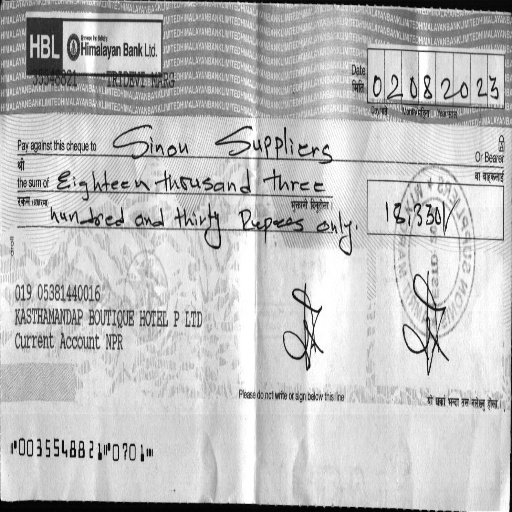 HBL Himalayan Bank Ltd.
TRIDEVI MARG
Date 02082023
मिति
Pay against this cheque to Sinou Suppliers Or Bearer
श्री वा वाहकलाई
the sum of Eighteen thousand three
hundred and thirty Rupees only.
18,330/
019 05381440016
KASTHAMANDAP BOUTIQUE HOTEL P LTD
Current Account NPR
Please do not write or sign below this line
⑈003554882⑈0701⑈